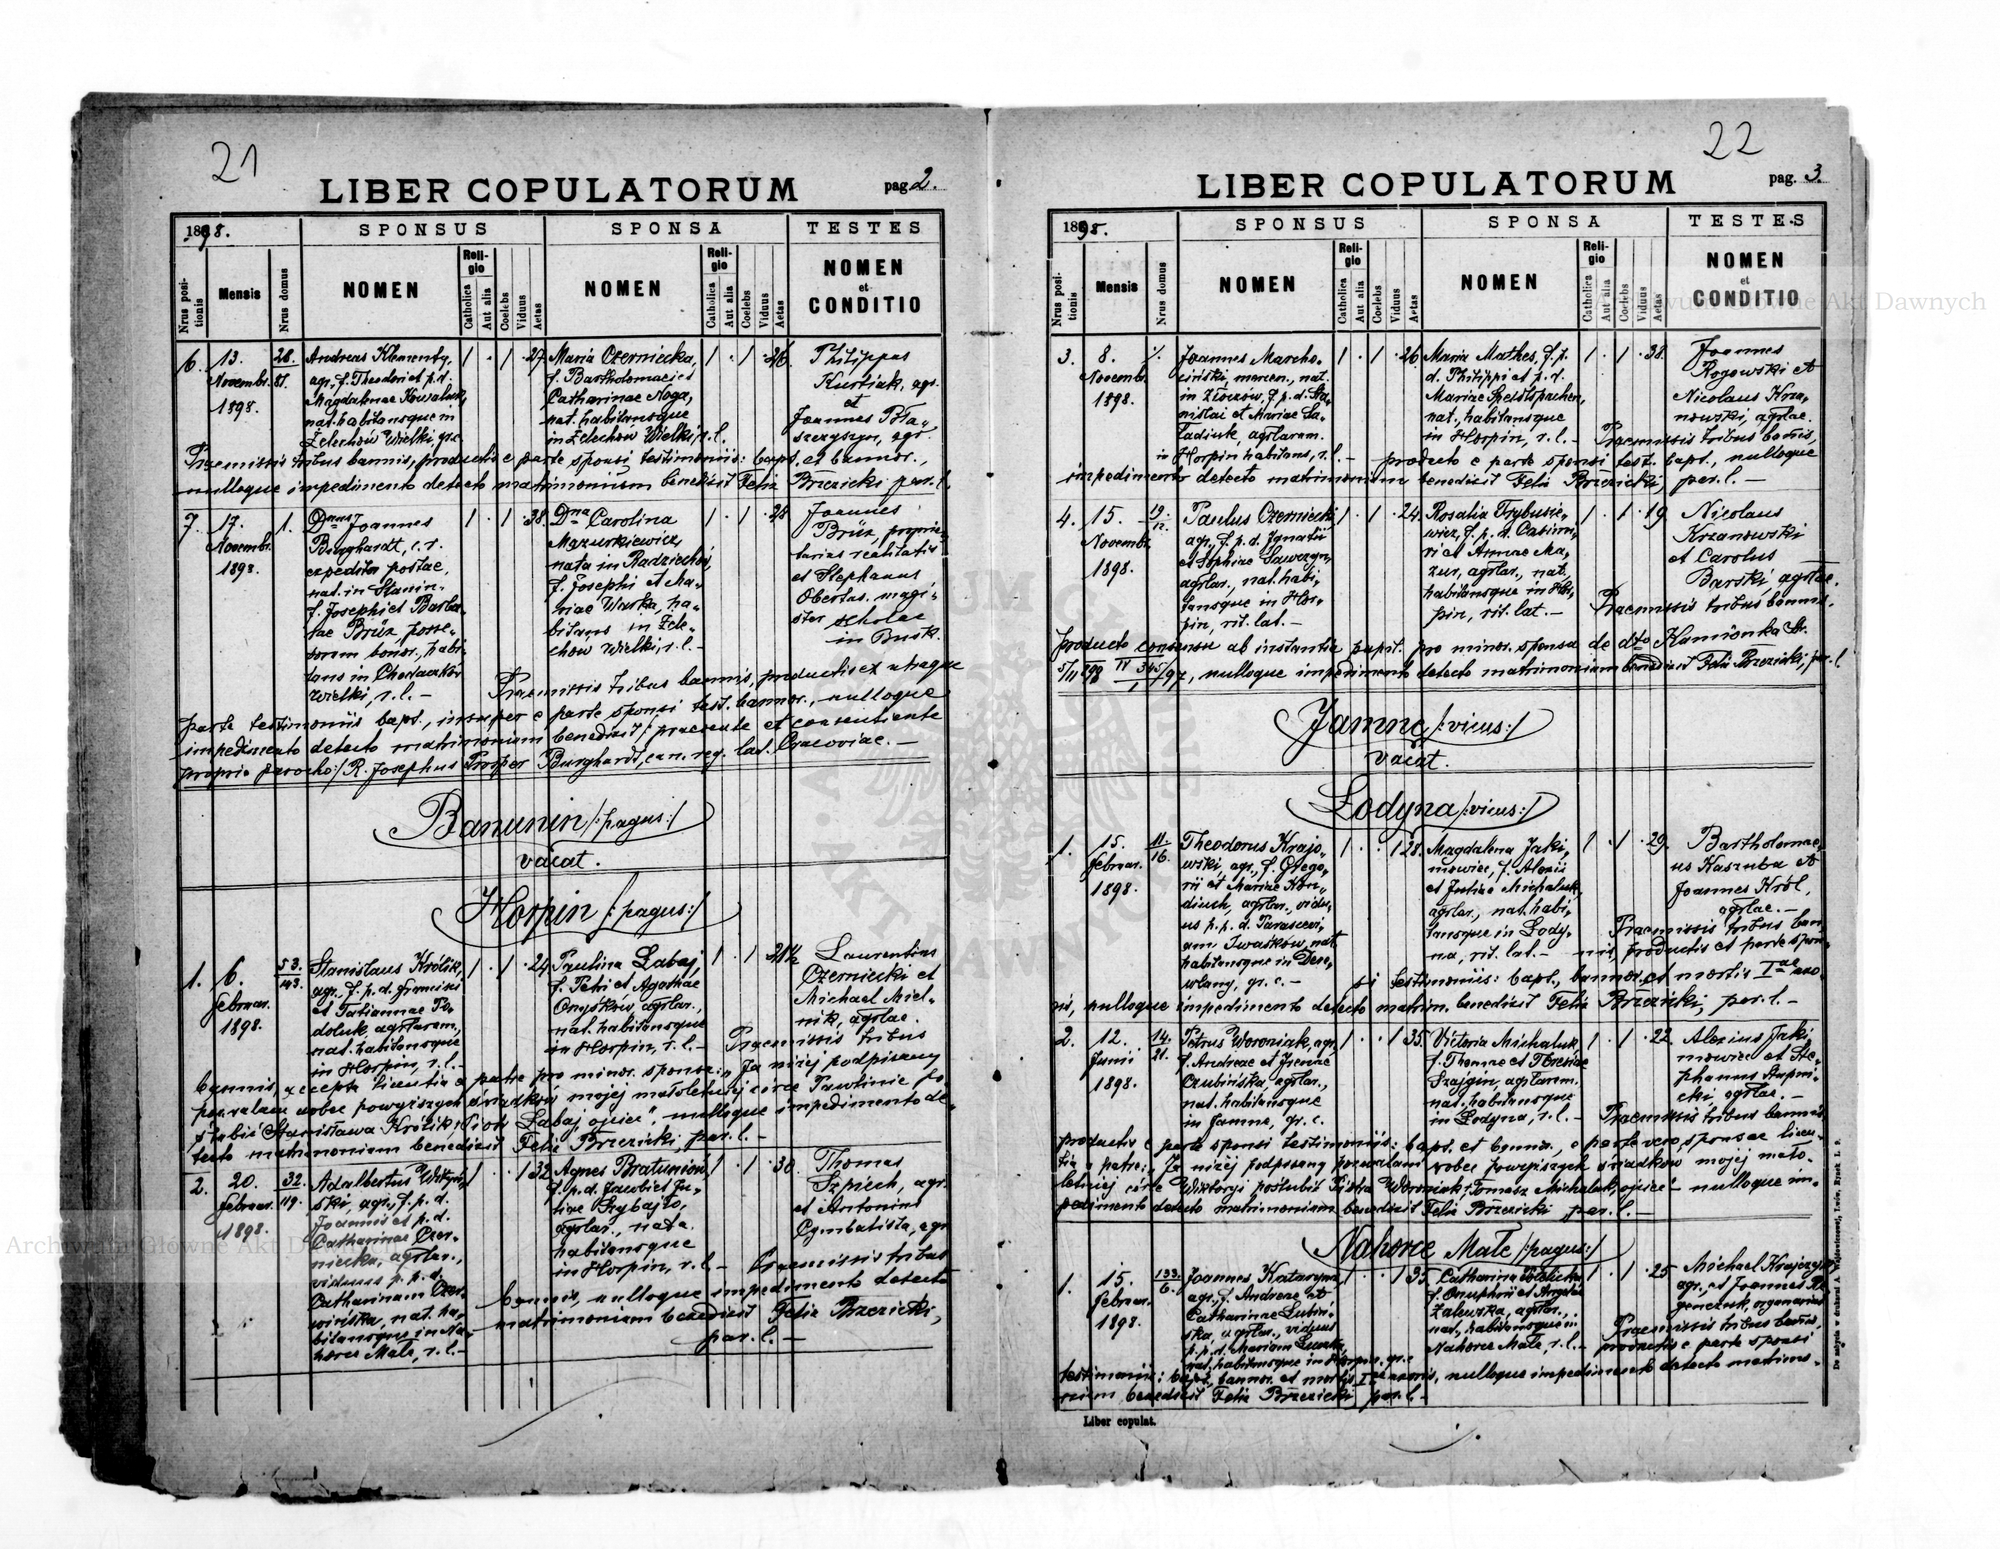 21
LIBER COPULATORUM
pag. 2.
1898.
SPONSUS
SPONSA
TESTES
Nrus positionis
Mensis
Nrus domus
NOMEN
Religio
Catholica
Aut alia
Coelebs
Viduus
Aetas
NOMEN
Religio
Catholica
Aut alia
Coelebs
Viduus
Aetas
NOMEN
et
CONDITIO
6.
13.
Novembr.
1898.
28.
81.
Andreas Klementy,
agr., f. Theodori et p. d.
Magdalenae Kowaluk,
nat. habitansque in
Żelechów Wielki, gr. c.
1 . 1 . 27.
Maria Czerniecka,
f. Bartholomaei et
Catharinae Noga,
nat. habitansque
in Żelechów Wielki, r. l.
1 . 1 . 26.
Philippus
Kursiak, agr.
et
Joannes Bła-
szczyszyn, agr.
Praemissis tribus bannis, productis e parte sponsi testimoniis: bapt. et bannor.,
nulloque impedimento detecto matrimonium benedixit Felix Brzezicki par. l.
7.
17.
Novembr.
1898.
1.
Dnus Joannes
Burghardt, c. r.
expeditor postae,
nat. in Stanin-
f. Josephi et Barba-
rae Brüx, posse-
sorum bonor., habi-
tans in Chodaczków
Wielki, r. l. -
1 . 1 . 38.
Dna Carolina
Mazurkiewicz,
nata in Radziechów,
f. Josephi et Ma-
riae Warka, ha-
bitans in Żele-
chów Wielki, r. l. -
1 . 1 . 28
Joannes
Brüx, proprie-
tarius realitatis
et Stephanus
Obertas, magi-
ster scholae
in Busk.
Praemissis tribus bannis, productis ex utraque
parte testimoniis bapt., insuper e parte sponsi test. bannor., nulloque
impedimento detecto matrimonium benedixit /:praesente et consentiente
proprio parocho:/ R. Josephus Prosper Burghardt, can. reg. lat. Cracoviae. -
Banunin /:pagus:/
vacat.
Horpin /:pagus:/
1.
6.
Februar.
1898.
53.
143.
Stanislaus Królik,
agr., f. p. d. Francisci
et Tatiannae Po-
doluk, agrlarum,
nat. habitansque
in Horpin, r. l. -
1 . 1 . 24.
Paulina Łabaj,
f. Petri et Agathae
Onyśków, agrlar.,
nat. habitansque
in Horpin, r. l. -
1 . 1
Laurentius
Czerniecki et
Michael Miel-
nik, agrlae.
Praemissis tribus
bannis, excepta licentia a patre pro minor. sponsa: „Ja niżej podpisany
pozwalam wobec powyższych świadków mojej małoletniej córce Pawlinie po-
ślubić Stanisława Królik: Piotr Łabaj ojciec“, nulloque impedimento de-
tecto matrimonium benedixit Felix Brzezicki, par. l. -
2.
20.
Februar.
1898.
32.
119.
Adalbertus
ski, agr., f. p. d.
Joannis et p. d.
Catharinae Czer-
niecka, agrlar.,
viduus p. p. d.
Catharinam
nat. ha-
bitansque in Na-
horce Małe, r. l. -
1 . . 1 32.
Agnes Bratuniów,
f. p. d. Jacobi et Ju-
liae Grybajło,
agrlar., nata
habitansque
in Horpin, r. l. -
1 . 1 . 30.
Thomas
Szpiech, agr.
et Antonius
Cymbalista, agr.
Praemissis tribus
bannis, nulloque impedimento detecto
matrimonium benedixit Felix Brzezicki,
par. l. -
22
LIBER COPULATORUM
pag. 3.
1898.
SPONSUS
SPONSA
TESTES
Nrus positionis
Mensis
Nrus domus
NOMEN
Religio
Catholica
Aut alia
Coelebs
Viduus
Aetas
NOMEN
Religio
Catholica
Aut alia
Coelebs
Viduus
Aetas
NOMEN
et
CONDITIO
3.
8.
Novembr.
1898.
Joannes Marcho-
ciński, mercen., nat.
in Złoczów, f. p. d. Sta-
nislai et Mariae Sa-
ladiuk, agrlarum.
in Horpin habitans, r. l. -
1 . 1 . 26.
Maria Mathes, f. p.
d. Philippi et p. d.
Mariae
nat., habitansque
in Horpin, r. l. -
1 . 1 . 38.
Joannes
Rogowski et
Nicolaus Krza-
nowski, agrlae.
Praemissis tribus bannis,
producto e parte sponsi test. bapt., nulloque
impedimento detecto matrimonium benedixit Felix Brzezicki, par. l. -
4.
15.
Novembr.
1898.
19.
12.
Paulus Czerniecki
agr., f. p. d. Ignatii
et Sophiae Sawczyn,
agrlar., nat. habi-
tansque in Hor-
pin, rit. lat. -
1 . 1 . 24.
Rosalia Trybusie-
wicz, f. p. d. Casimi-
ri et Annae Ma-
zur, agrlar., nat.
habitansque in Hor-
pin, rit. lat. -
1 . 1 . 19
Nicolaus
Krzanowski
et Carolus
Barski, agrlae.
Praemissis tribus bannis,
producto consensu ab instantia pro minor. sponsa de dto Kamionka Str.
nulloque impedimento detecto matrimonium benedixit Felix Brzezicki, par. l.
Jamne /:vicus:/
vacat.
Łodyna /:vicus:/
1.
15.
Februar.
1898.
11.
16.
Theodorus Krajo-
wski, agr., f. Grego-
rii et Mariae Kon-
diuch, agrlar., vidu-
us p. p. d. Parascevi-
am Iwaśków, nat.
habitansque in Dere-
wlany, gr. c. -
1 . . 1 28.
Magdalena Jaki-
mowicz, f. Alexii
et Justinae Michaluk,
agrlar., nat. habi-
tansque in Łody-
na, rit. lat. -
1 . 1 . 29.
Bartholomae-
us Kaszuba et
Joannes Król,
agrlae. -
Praemissis tribus ban-
nis, productis et parte spon-
si testimoniis: bapt., bannor. et mortis Iae uxo-
ris, nulloque impedimento detecto matrim. benedixit Felix Brzezicki, par. l. -
2.
12.
Junii
1898.
14.
21.
Petrus Woroniak, agr.,
f. Andreae et Irenae
Czubińska, agrlar.,
nat. habitansque
in Jamne, gr. c.
1 . . 1 35.
Victoria Michaluk
f. Thomae et Theresiae
Szajgin, agrlarum.
nat. habitansque
in Łodyna, r. l. -
1 . 1 . 22.
Alexius Jaki-
mowicz et Ste-
phanus
agrlae. -
Praemissis tribus bannis,
productis e parte sponsi testimoniis: bapt. et bannor., e parte vero sponsae licen-
tia a patre: „Ja niżej podpisany pozwalam wobec powyższych świadków mojej mało-
letniej córce Wiktoryi poślubić Piotra Woroniak: Tomasz Michaluk, ojciec“ - nulloque im-
pedimento detecto matrimonium benedixit Felix Brzezicki par. l. -
Nahorce Małe /:pagus:/
1.
15.
Februar.
1898.
133.
6.
Joannes Kataryna,
agr., f. Andreae et
Catharinae Lubiń-
ska, agrlar., viduus
p. p. d. Mariam
nat. habitansque in Horpin, gr. c.
1 . . 1 35.
Catharina
f. Onuphrii et Angelae
Zalewska, agrlar.,
nat., habitansque in
Nahorce Małe, r. l. -
1 . 1 . 25
Michael Krajczyk,
agr., et Joannes
organarius
Praemissis tribus bannis,
productis e parte sponsi
testimoniis: bapt., bannor. et mortis Iae uxoris, nulloque impedimento detecto matrimo-
nium benedixit Felix Brzezicki par. l. -
Liber copulat.
Archiwum Główne Akt Dawnych
Archiwum Główne Akt Dawnych